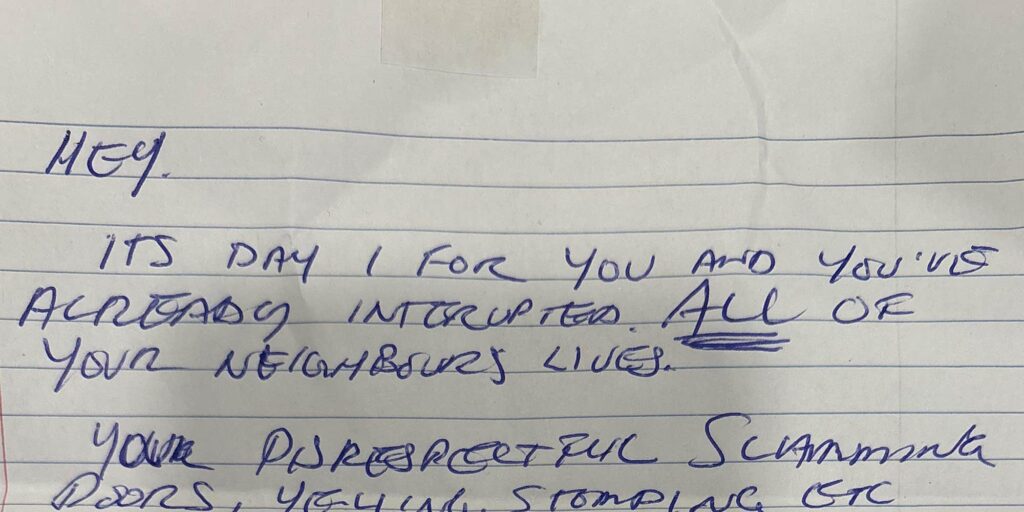 HEY.
ITS DAY 1 FOR YOU AND YOU'VE
ALREADY INTERUPTED. ALL OF
YOUR NEIGHBOURS LIVES.
YOUR DISRESPECTFUL SLAMMING
DOORS, YELLING, STOMPING ETC